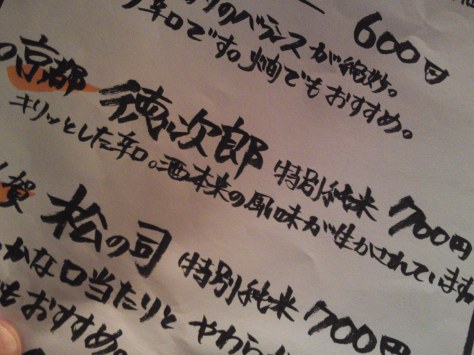 のバランスが絶妙。 600円
辛口です。燗でもおすすめ。
京都 徳次郎 特別純米 700円
キリッとした辛口。酒本来の風味が生かされています
賀 松の司 特別純米 700円
かな口当たりと やわら
もおすすめ。